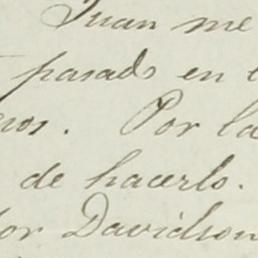 Juan me
pasado en
Por la
de hacerlo.
Davidson